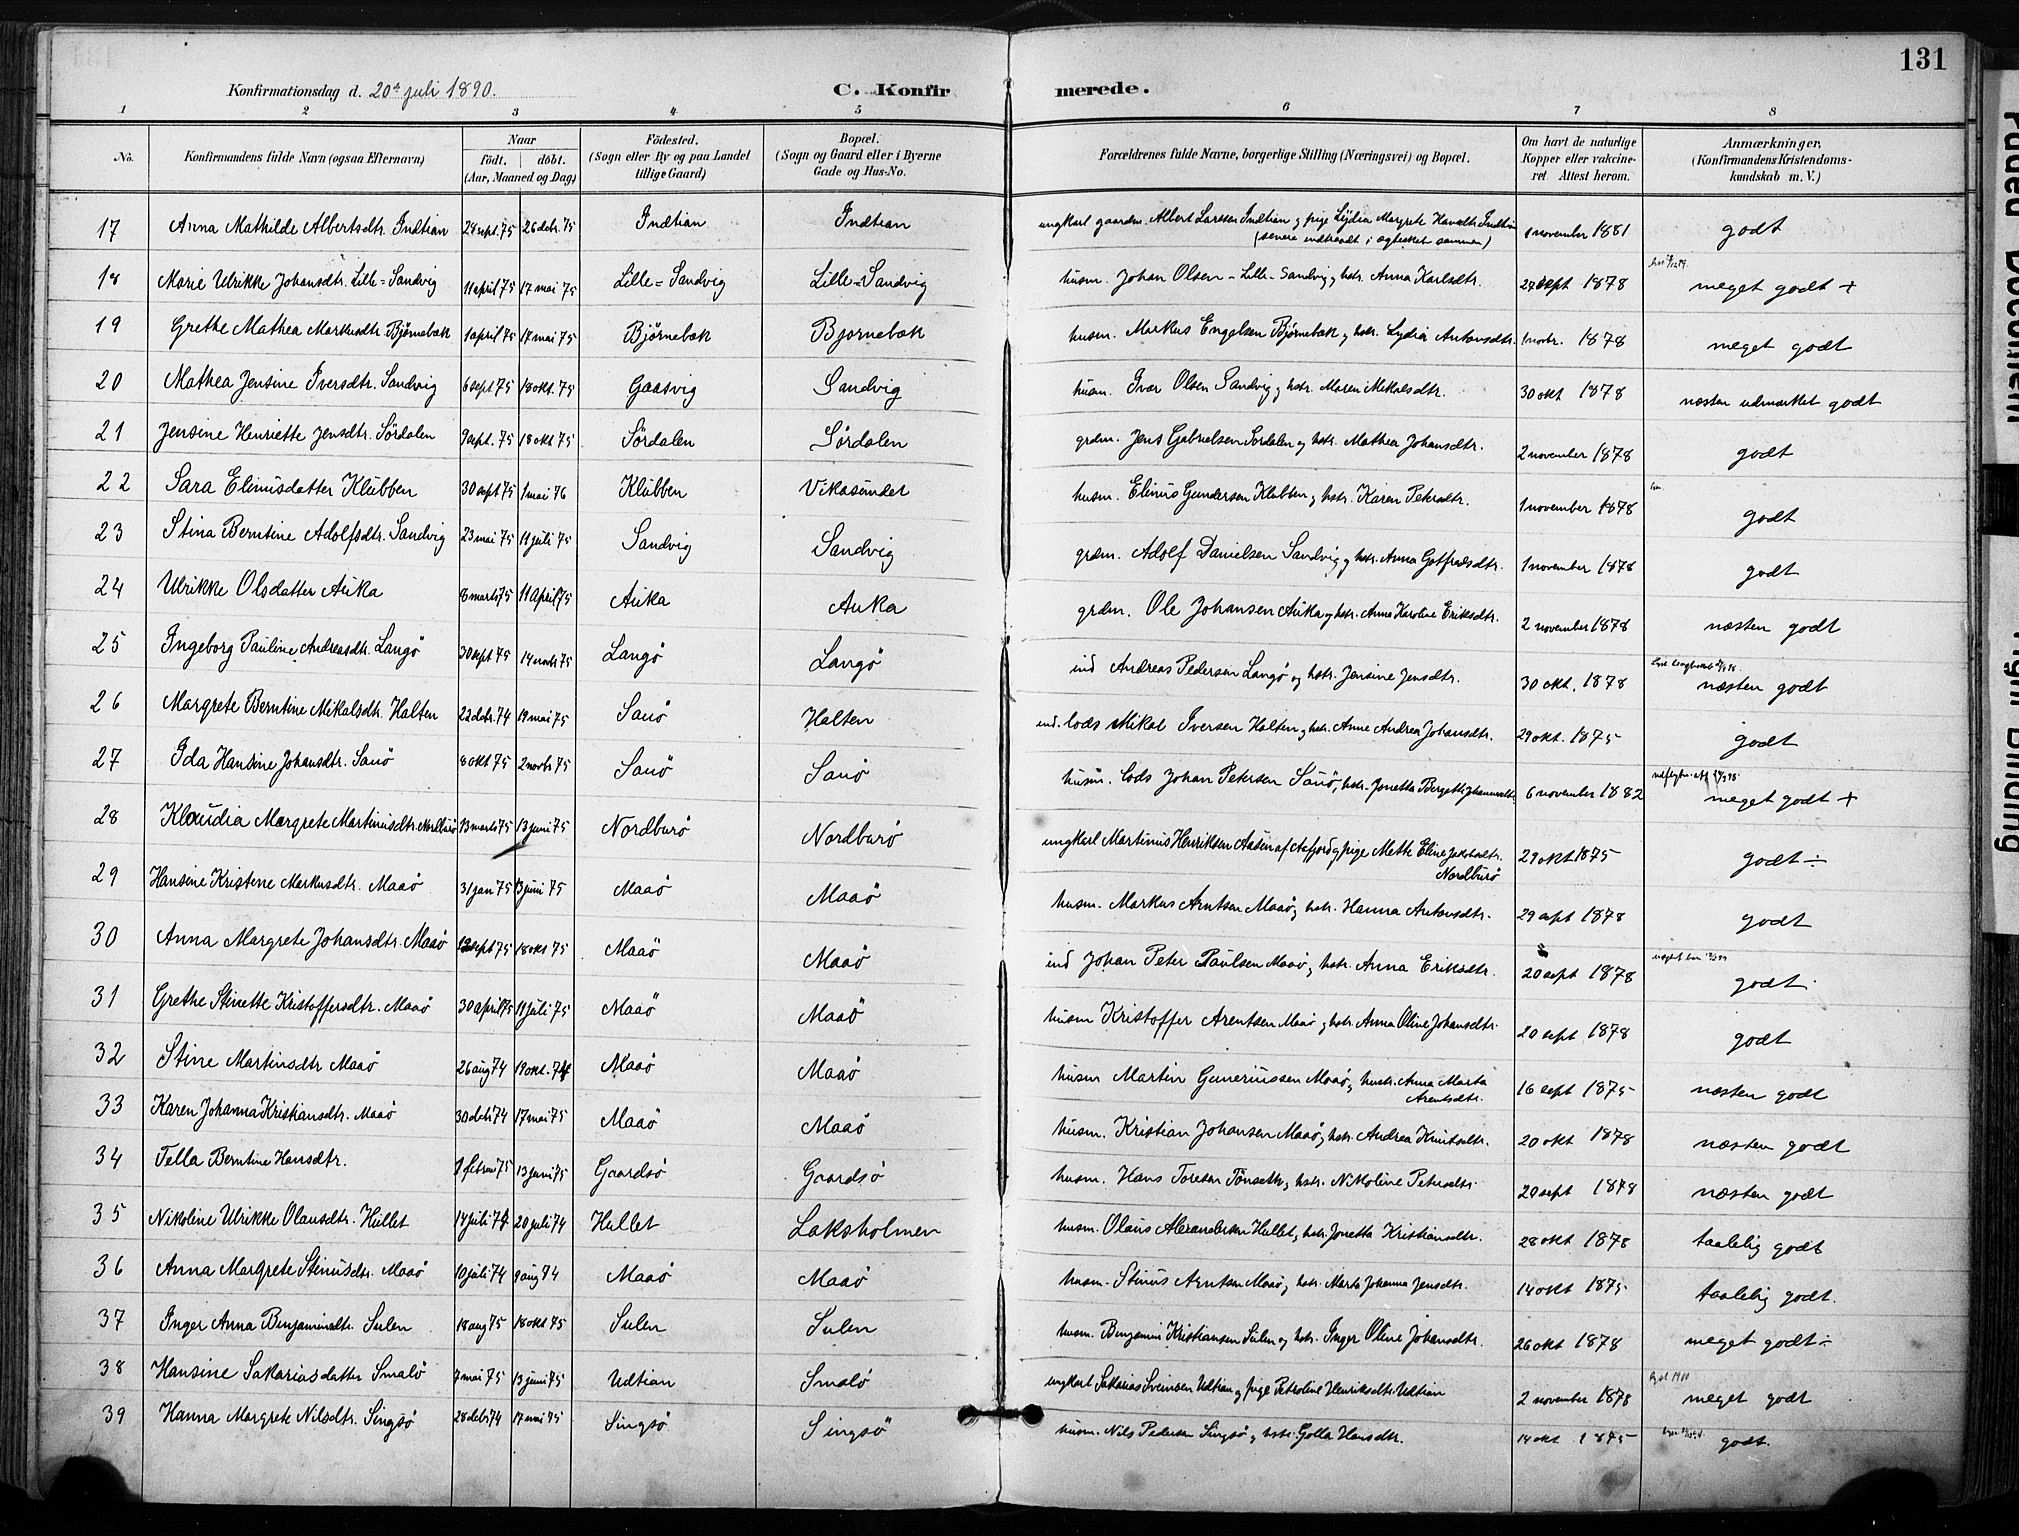 131
Konfirmationsdag d. 20de juli 1890. C. Konfirmerede.
1 2 3 4 5 6 7 8
No. Konfirmandens fulde Navn (ogsaa Efternavn) Naar født. døbt. (Aar, Maaned og Dag) Fødested. (Sogn eller By og paa Landet tillige Gaard) Bopæl. (Sogn og Gaard eller i Byerne Gade og Hus-No. Forældrenes fulde Navne, borgerlige Stilling (Næringsvei) og Bopæl. Om havt de naturlige Kopper eller vakcineret Attest herom. Anmærkninger. (Konfirmandens Kristendomskundskab m. V.)
17 Anna Mathilde Albertsdtr. Indtian 24 sept. 75 26 dcbr. 75 Indtian Indtian ungkarl gaardm. Albert Larssen Indtian og pige Lydia Margrete Indtian 1 november 1881 godt
(senere indtraadt i ægteskab sammen)
18 Marie Ulrikke Johansdtr. Lille-Sandvig 11 april 75 17 mai 75 Lille-Sandvig Lille-Sandvig husm. Johan Olsen Lille-Sandvig og hstr. Anna Karlsdtr. 24 sept 1878 meget godt +
19 Grethe Mathea Markusdtr. Bjørnebæk 1 april 75 17 mai 75 Bjørnebæk Bjørnebæk husm. Markus Engelsen Bjørnebæk og hstr. Lydia Antonsdtr. 1 novbr. 1878 meget godt
20 Mathea Jensine Iversdtr. Sandvig 6 sept 75 18 okt. 75 Gaasvig Sandvig husm. Ivar Olsen Sandvig og hstr. Maren Mikalsdtr. 30 okt 1878 næsten udmærket godt
21 Jensine Henriette Jensdtr. Sørdalen 9 sept. 75 18 okt 75 Sørdalen Sørdalen grdm. Jens Gabrielsen Sørdalen og hstr. Mathea Johansdtr. 2 november 1878 godt
22 Sara Elinusdatter Klubben 30 sept 75 1 mai 76 Klubben Vikasundet husm. Elinus Gundersen Klubben og hstr. Karen Petersdtr. 1 november 1878 godt
23 Stina Berntine Adolfsdtr. Sandvig 23 mai 75 11 juli 75 Sandvig Sandvig grdm. Adolf Danielsen Sandvig og hstr. Anna Gotfredsdtr. 1 november 1878 godt
24 Ulrikke Olsdatter Auka 8 marts 75 11 april 75 Auka Auka grdm. Ole Johansen Auka og hstr. Anne Karoline Eriksdtr. 2 november 1878 næsten godt
25 Ingeborg Pauline Andreasdtr. Langø 30 sept 75 14 novbr 75 Langø Langø ind Andreas Pedersen Langø og hstr. Jensine Jensdtr. 30 okt. 1878 næsten godt
26 Margrete Berntine Mikalsdtr. Halten 22 dcbr. 74 19 mai 75 Sauø Halten ind. lods Mikal Iversen Halten og hstr. Anne Andrea Johansdtr. 29 okt. 1875 godt
27 Ida Hansine Johansdtr. Sauø 8 okt 75 2 novbr 75 Sauø Sauø husm. lods Johan Petersen Sauø, hstr. Jonetta Bergette 6 november 1882 meget godt +
28 Klaudia Margrete Martinusdtr. Nordburø 13 marts 75 13 juni 75 Nordburø Nordburø ungkarl Martinus Henriksen Aasen af Aafjord og pige Mette Eline Jakobsdtr. 29 okt 1875 godt ÷
Nordburø
29 Hansine Kristene Markusdtr. Maaø 31 jan 75 13 juni 75 Maaø Maaø husm. Markus Arntsen Maaø og hstr. Hanna Antonsdtr. 29 sept 1878 godt
30 Anna Margrete Johansdtr. Maaø 12 sept 75 18 okt 75 Maaø Maaø ind Johan Peter Paulsen Maaø og hstr. Anna Eriksdtr. 20 sept 1878 godt.
31 Grethe Stinette Kristoffersdtr. Maaø 30 april 75 11 juli 75 Maaø Maaø husm Kristoffer Arentsen Maaø og hstr. Anna Oline Johansdtr. 20 sept 1878 godt
32 Stine Martinsdtr Maaø 26 aug 74 19 okt. 74 Maaø Maaø husm Martin Guneriussen Maaø, hustr. Anna Marta 16 sept 1875 næsten godt
Arentsdtr.
33 Karen Johanna Kristiansdtr. Maaø 30 dcbr 74 17 mai 75 Maaø Maaø husm. Kristian Johansen Maaø og hstr. Andrea Knutsdtr. 20 okt 1878 næsten godt
34 Tella Berntine Hansdtr. 1 febru 75 13 juni 75 Gaardsø Gaardsø husm. Hans Toresen Tønseth og hstr. Nikoline Petersdtr. 20 sept 1878 næsten godt
35 Nikoline Ulrikke Olausdtr. Hullet 14 juli 74 20 juli 74 Hullet Laksholmen husm. Olaus Alexandersen Hullet og hstr. Jonetta Kristiansdtr. 28 okt 1878 taalelig godt
36 Anna Margrete Stinusdtr. Maaø 10 juli 74 9 aug 74 Maaø Maaø husm. Stinus Arntsen Maaø og hstr. Marta Johanna Jensdtr. 14 okt 1875 taalelig godt.
37 Inger Anna Benjaminsdtr. Sulen 18 aug 75 18 okt 75 Sulen Sulen husm. Benjamin Kristiansen Sulen og hstr. Inger Oline Johansdtr. 26 okt 1878 meget godt ÷
38 Hansine Sakariasdatter Smalø 7 mai 75 13 juni 75 Udtian Smalø ungkarl Sakarias Sveinsen Udtian og pige Petroline Henriksdtr. Udtian 2 november 1878 meget godt
39 Hanna Margrete Nilsdtr. Singsø 28 dcbr 74 17 mai 75 Singsø Singsø husm. Nils Pedersen Singsø og hstr. Golla Hansdtr. 14 okt 1875 godt.